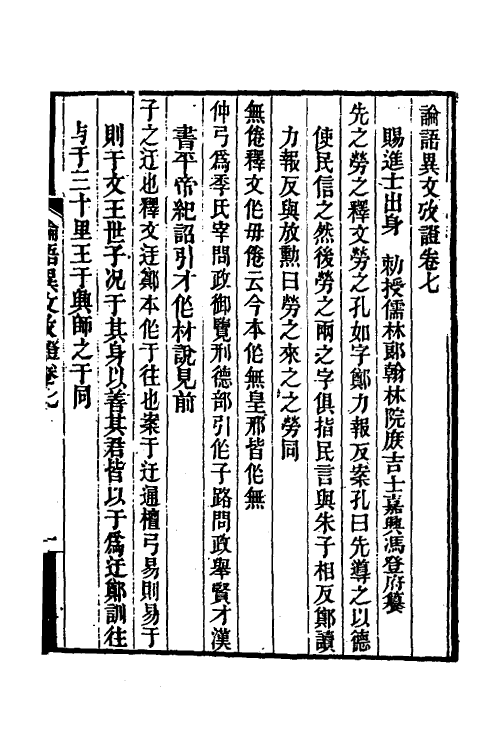 論語異文攷證卷七
賜進士出身　勅授儒林郎翰林院庶吉士嘉興馮登府纂
先之勞之釋文勞之孔如字鄭力報反案孔曰先導之以德
使民信之然後勞之兩之字俱指民言與朱子相反鄭讀
力報反與放勲曰勞之來之之勞同
無倦釋文作毋倦云今本作無皇邢皆作無
仲弓爲季氏宰問政御覽刑德部引作子路問政舉賢才漢
書平帝紀詔引才作材說見前
子之迂也釋文迂鄭本作于往也案于迂通檀弓易則易于
則于文王世子况于其身以善其君皆以于爲迂鄭訓往
与于三十里王于興師之于同
論語異文攷證卷七
一